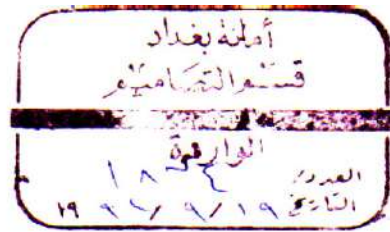 أمانة بغداد
قسم التصاميم
الواردة
العدد /
التاريخ ١٩ / ٩ /